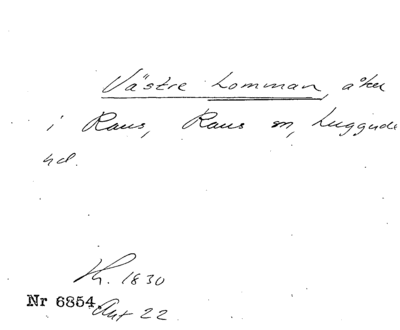 Västre Lomman, åker
i Raus, Raus sn, Luggude
hd.
Kh. 1830
Nr 6854. Akt 22